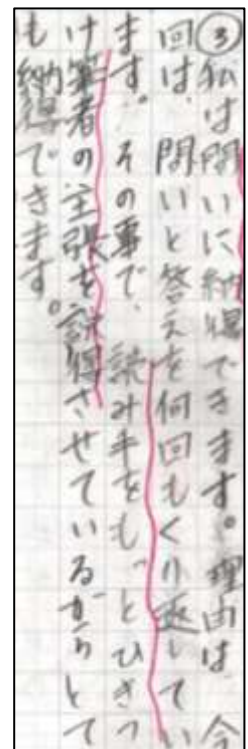 ③私は問いに納得できます。理由は、今
回は、問いと答えを何回もくり返してい
ます。その事で、読み手をもっとひきつ
け筆者の主張を説得させているからとて
も納得できます。